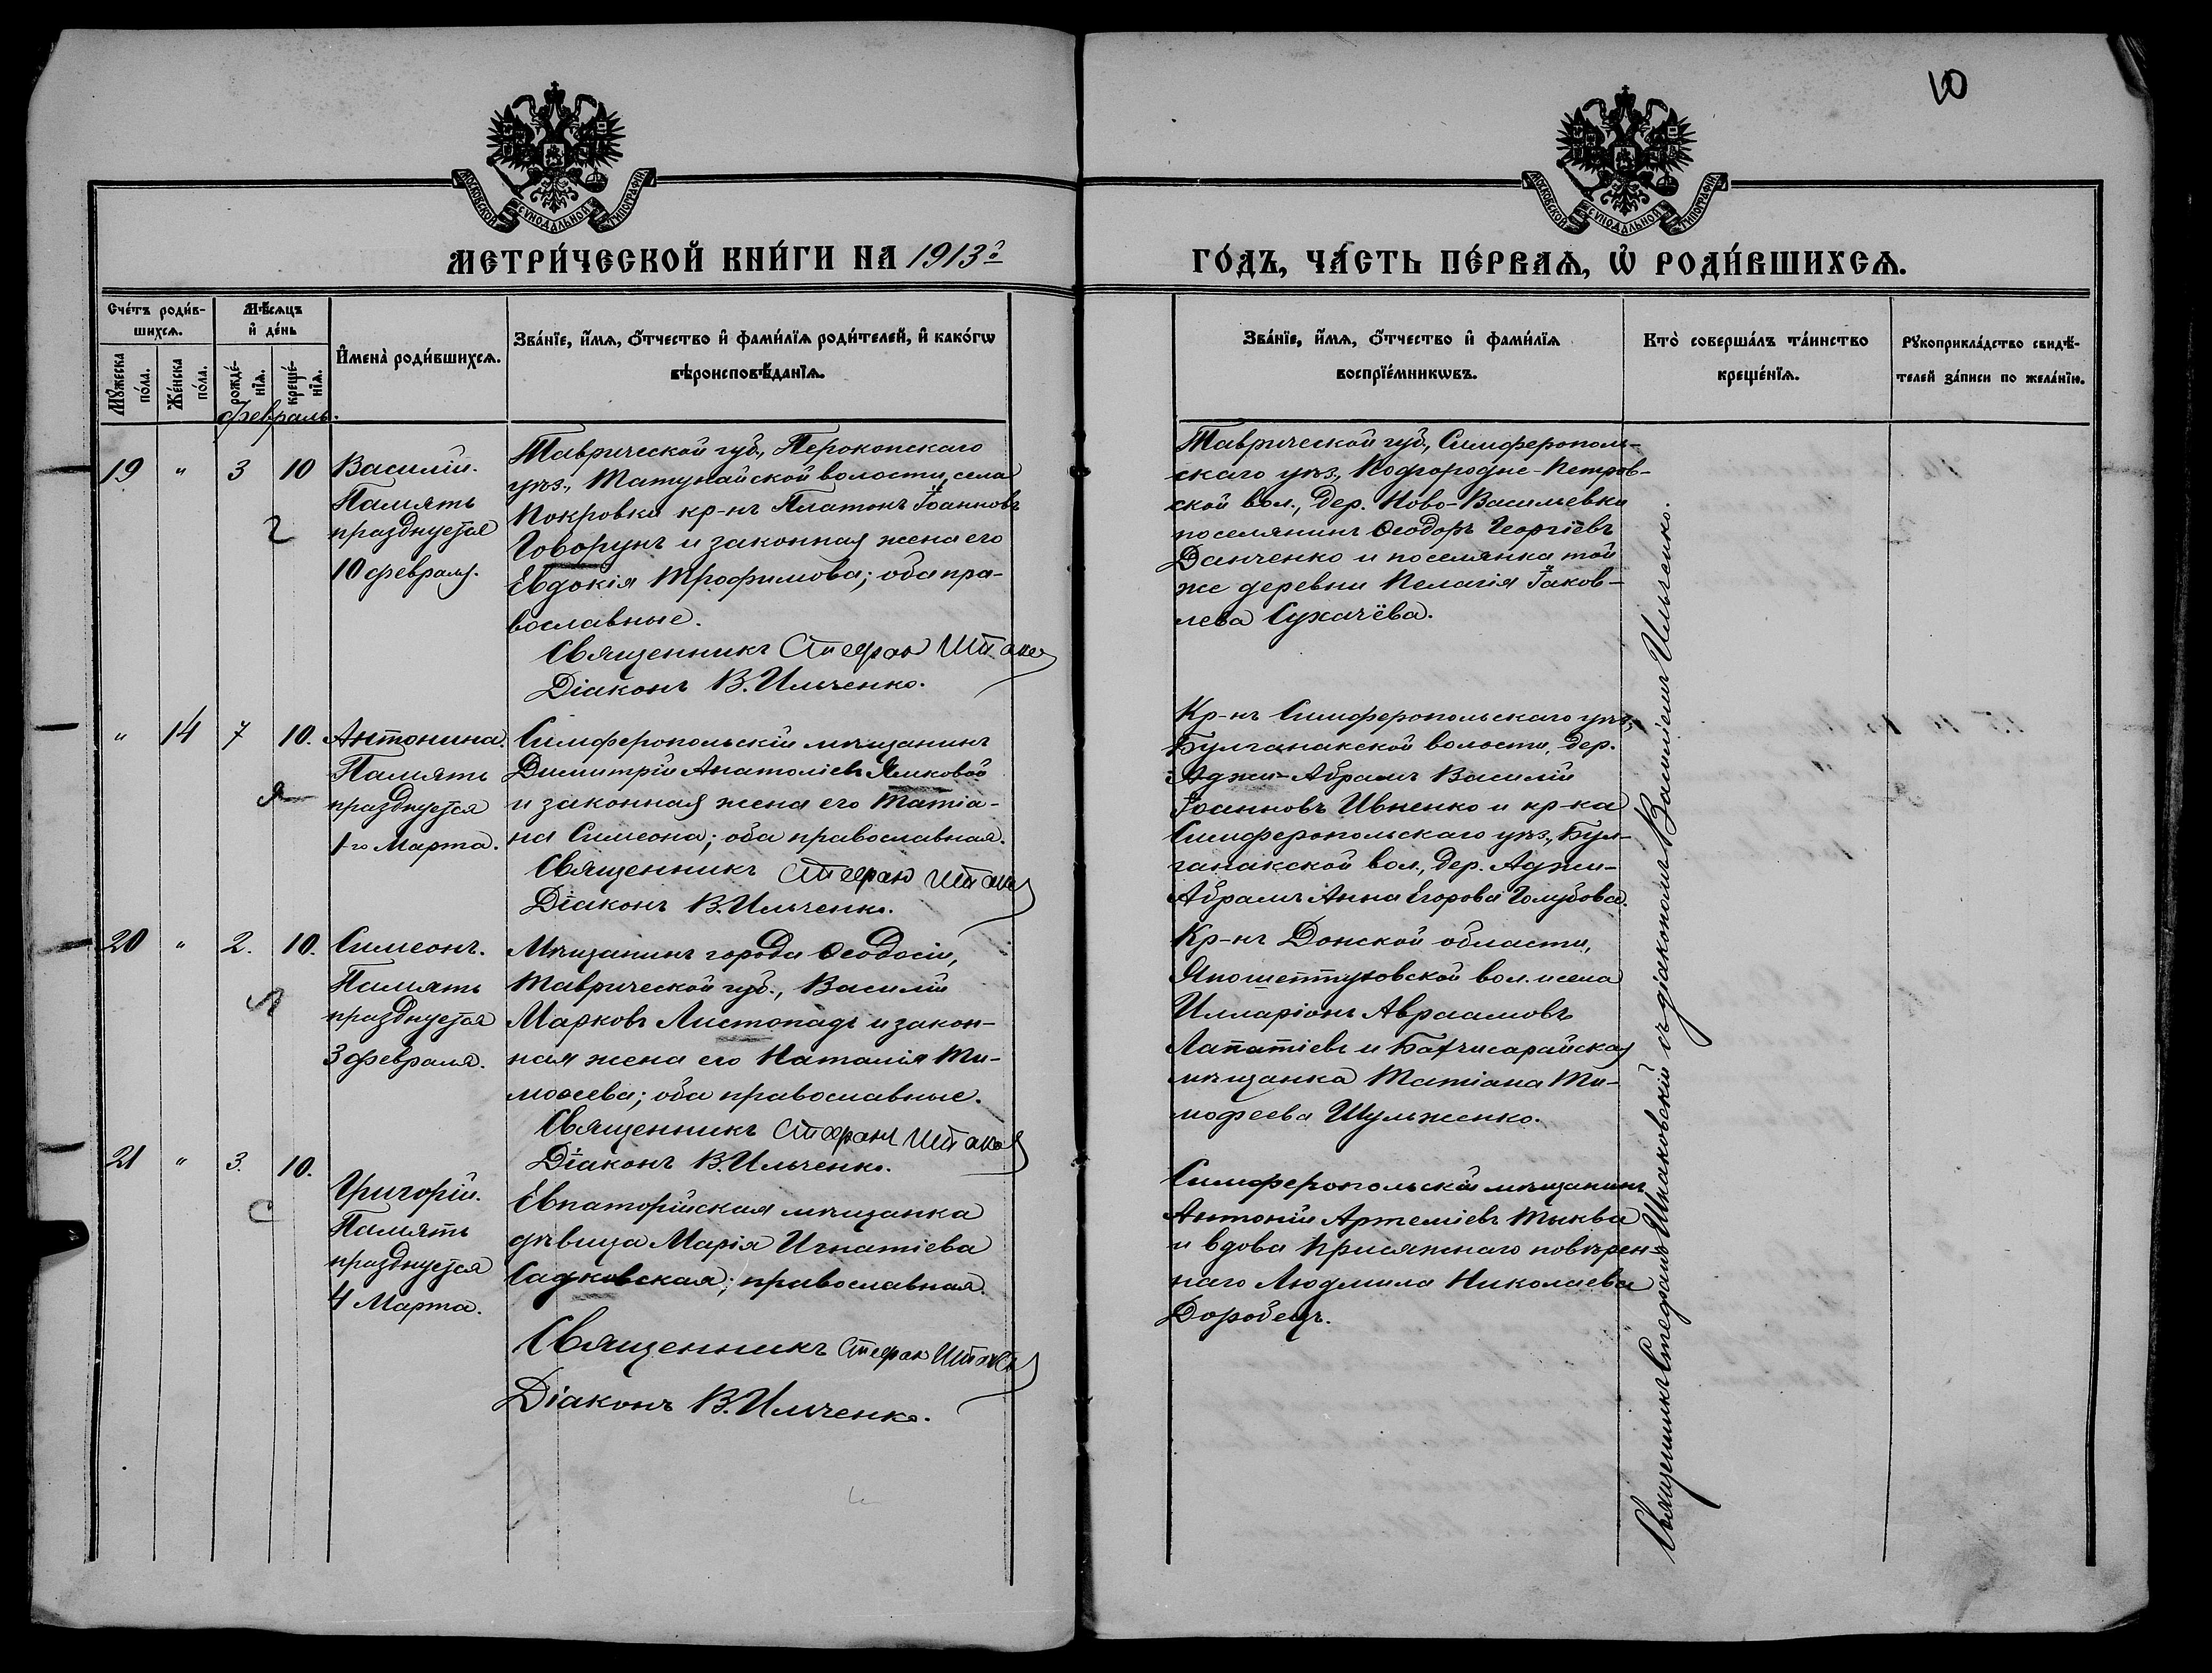 10
МОСКОВСКОЙ СѴНОДАЛЬНОЙ ТИПОГРАФІИ
МОСКОВСКОЙ СѴНОДАЛЬНОЙ ТИПОГРАФІИ
МЕТРИ́ЧЕСКОЙ КНИ́ГИ НА 1913 й
ГО́ДЪ, ЧА́СТЬ ПЕ́РВАѦ, Ѡ РОДИ́ВШИХСѦ.
Сче́тъ роди́в-
шихсѧ.
Мꙋжеска по́ла.
Же́нска по́ла.
Мѣ́сѧцъ
и҆ де́нь
рожде́-
нїѧ.
креще́-
нїѧ.
И҆мена̀ роди́вшихсѧ.
Зва́нїе, и҆́мѧ, ѻ҆́тчество и҆ фами́лїѧ роди́телей, и҆ како́гѡ
вѣроисповѣ́данїѧ.
Зва́нїе, и҆́мѧ, ѻ҆́тчество и҆ фами́лїѧ
воспрїе́мникѡвъ.
Кто̀ соверша́лъ та́инство
креще́нїѧ.
Рꙋкоприкла́дство свидѣ́-
телей за́писи по жела́нїю.
февраль.
19 " 3 10
Василій.
Память
празднуется
10 февраля.
Таврической губ., Перекопскаго
уѣз., Магунайской волости, села
Покровки кр-нъ Платонъ Іоанновъ
Говорунъ и законная жена его
Евдокія Трофимова; оба пра-
вославные.
Священникъ Стефан
Діаконъ В. Ильченко.
Таврической губ., Симферополь-
скаго уѣз., Подгородне-Петров-
ской вол., дер. Ново-Васильевки
поселянинъ Ѳеодоръ Георгіевъ
Данченко и поселянка той
же деревни Пелагія Іаков-
лева Сухачёва.
" 14 7 10.
Антонина.
Память
празднуется
1-го Марта.
Симферопольскій мѣщанинъ
Димитрій Анатоліевъ Яликовой
и законная жена его Татіа-
на Симеона; оба православная.
Священникъ Стефан
Діаконъ В. Ильченко.
Кр-нъ Симферопольскаго уѣз.,
Булганакской волости, дер.
Аджи-Абрамъ Василій
Іоанновъ Ивненко и кр-ка
Симферопольскаго уѣз., Бул-
ганакской вол., дер. Аджи-
Абрамъ Анна Егорова Голубова.
20 " 2. 10.
Симеонъ.
Память
празднуется
3 февраля.
Мѣщанинъ города Ѳеодосіи,
Таврической губ., Василій
Марковъ Листопадъ и закон-
ная жена его Наталія Ти-
моѳеева; оба православные.
Священникъ Стефанъ
Діаконъ В. Ильченко.
Кр-нъ Донской области,
вол. и села
Илларіонъ Авраамовъ
Лапатіевъ и Бахчисарайская
мѣщанка Татіана Ти-
мофеева Шульженко.
21 " 3. 10.
Григорій.
Память
празднуется
4 Марта.
Евпаторійская мѣщанка
дѣвица Марія Игнатіева
Садковская; православная.
Священникъ Стефан
Діаконъ В. Ильченко.
Симферопольскій мѣщанинъ
Антоній Артеміевъ Тыква
и вдова присяжнаго повѣрен-
наго Людмила Николаева
Доробецъ.
Священникъ Стефанъ Шпаковскій съ діакономъ Василіемъ Ильченко.